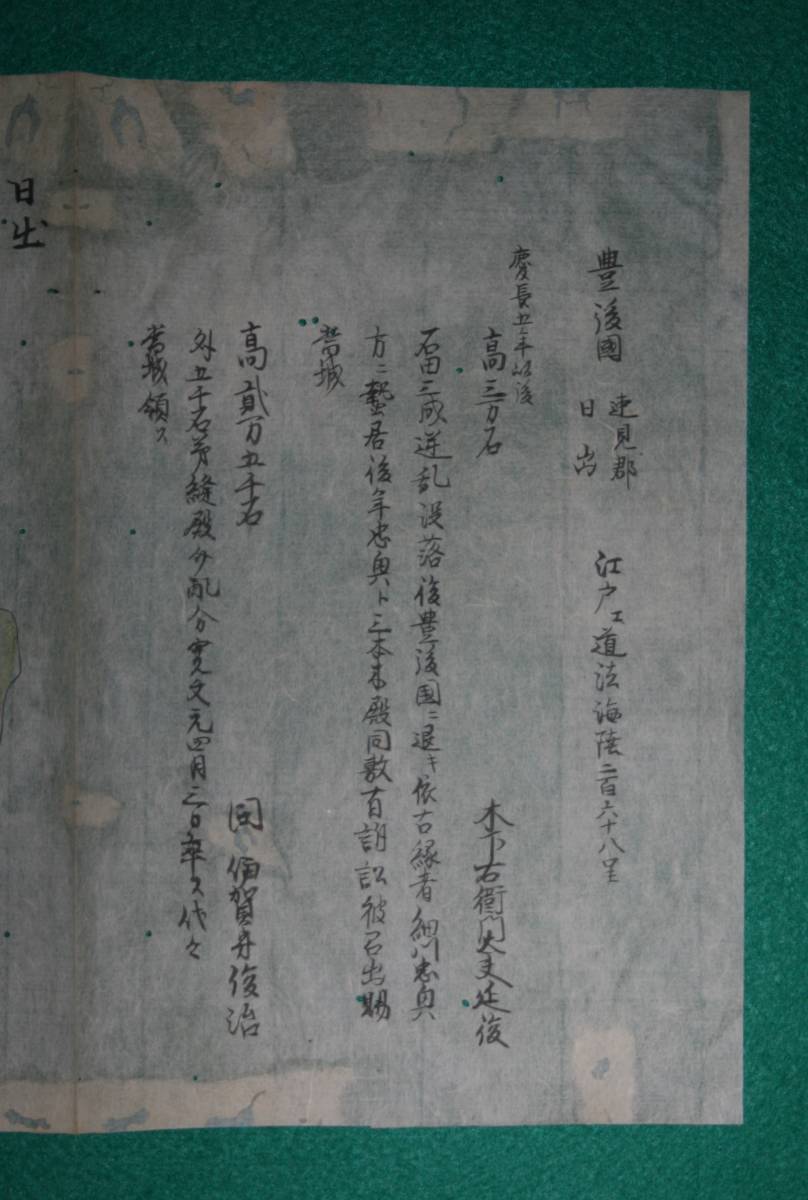 豊後國 速見郡 日出 江戸エ道法海陸二百六十八里
慶長五年以後
高三万石 木下右衛門大夫延俊
石田三成逆乱没落後豊後国ニ退キ依古縁者細川忠奥
方ニ蟄居後年忠奥ト三本木殿同敷首訴訟彼召出賜
当城
高貳万五千石 同伊賀守俊治
外五千石弟縫殿分配分寛文元四月三日卒ス代々
当城領ス
日出